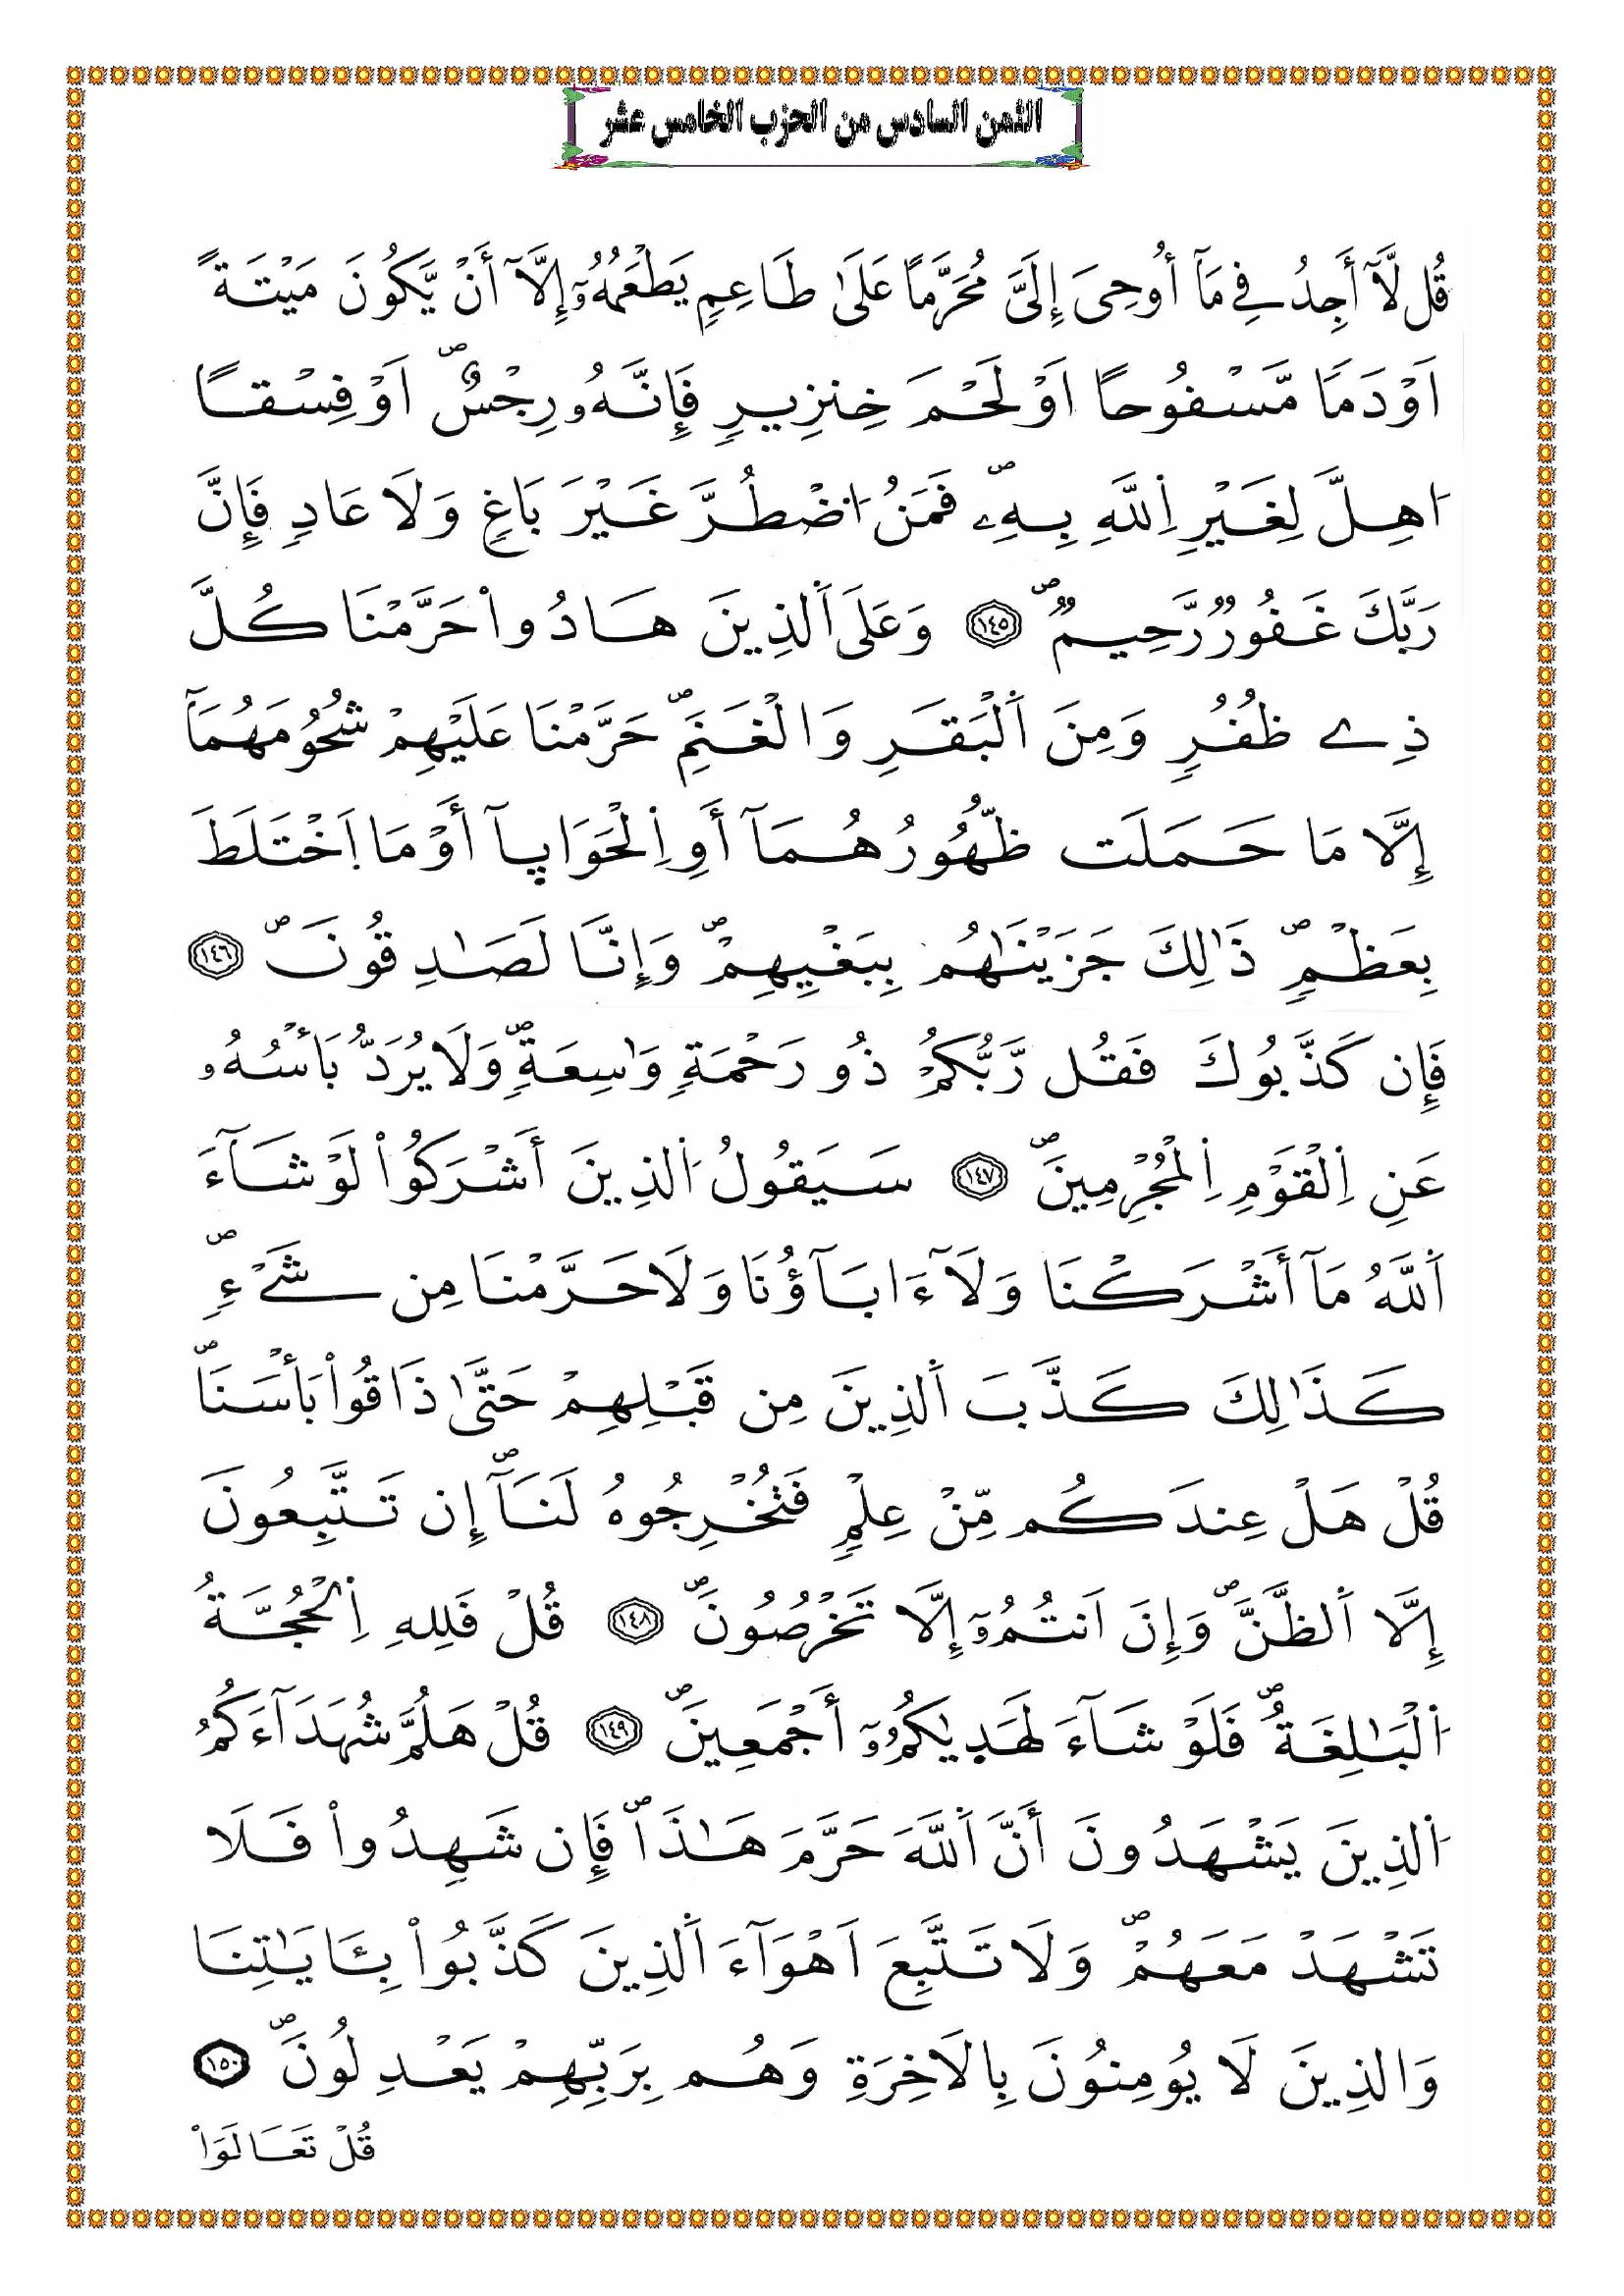 الثمن السادس من الحزب الخامس عشر
قُل لَّآ أَجِدُ فِے مَآ أُوحِىَ إِلَىَّ مُحَرَّماً عَلَىٰ طَاعِمٖ يَطْعَمُهُۥٓ إِلَّآ أَنْ يَّكُونَ مَيْتَةً
اَوْ دَماً مَّسْفُوحاً اَوْ لَحْمَ خِنزِيرٖ فَإِنَّهُۥ رِجْسٌۖ اَوْ فِسْقاً
اُهِلَّ لِغَيْرِ اِ۬للَّهِ بِهِۦۖ فَمَنُ اُ۟ضْطُرَّ غَيْرَ بَاغٖ وَلَا عَادٖ فَإِنَّ
رَبَّكَ غَفُورٞ رَّحِيمٞۖ ١٤٥ وَعَلَى اَ۬لذِينَ هَادُواْ حَرَّمْنَا كُلَّ
ذِے ظُفُرٖ وَمِنَ اَ۬لْبَقَرِ وَالْغَنَمِۖ حَرَّمْنَا عَلَيْهِمْ شُحُومَهُمَآ
إِلَّا مَا حَمَلَت ظُّهُورُهُمَآ أَوِ اِ۬لْحَوَايِآ أَوْ مَا اَ۪خْتَلَطَ
بِعَظْمٖۖ ذَٰلِكَ جَزَيْنَٰهُم بِبَغْيِهِمْۖ وَإِنَّا لَصَٰدِقُونَۖ ١٤٦
فَإِن كَذَّبُوكَ فَقُل رَّبُّكُمْ ذُو رَحْمَةٖ وَٰسِعَةٖۖ وَلَا يُرَدُّ بَأْسُهُۥ
عَنِ اِ۬لْقَوْمِ اِ۬لْمُجْرِمِينَۖ ١٤٧ سَيَقُولُ اُ۬لذِينَ أَشْرَكُواْ لَوْ شَآءَ
اَ۬للَّهُ مَآ أَشْرَكْنَا وَلَآ ءَابَآؤُنَا وَلَا حَرَّمْنَا مِن شَےْءٖۖ
كَذَٰلِكَ كَذَّبَ اَ۬لذِينَ مِن قَبْلِهِمْ حَتَّىٰ ذَاقُواْ بَأْسَنَاۖ
قُلْ هَلْ عِندَكُم مِّنْ عِلْمٖ فَتُخْرِجُوهُ لَنَآۖ إِن تَتَّبِعُونَ
إِلَّا اَ۬لظَّنَّۖ وَإِنَ اَنتُمُۥٓ إِلَّا تَخْرُصُونَۖ ١٤٨ قُلْ فَلِلهِ اِ۬لْحُجَّةُ
اُ۬لْبَٰلِغَةُۖ فَلَوْ شَآءَ لَهَد۪يٰكُمُۥٓ أَجْمَعِينَۖ ١٤٩ قُلْ هَلُمَّ شُهَدَآءَكُمُ
اُ۬لذِينَ يَشْهَدُونَ أَنَّ اَ۬للَّهَ حَرَّمَ هَٰذَاۖ فَإِن شَهِدُواْ فَلَا
تَشْهَدْ مَعَهُمْۖ وَلَا تَتَّبِعَ اَهْوَآءَ اَ۬لذِينَ كَذَّبُواْ بِـَٔايَٰتِنَا
وَالذِينَ لَا يُومِنُونَ بِالَاخِرَةِ وَهُم بِرَبِّهِمْ يَعْدِلُونَۖ ١٥٠
قُلْ تَعَالَوَاْ